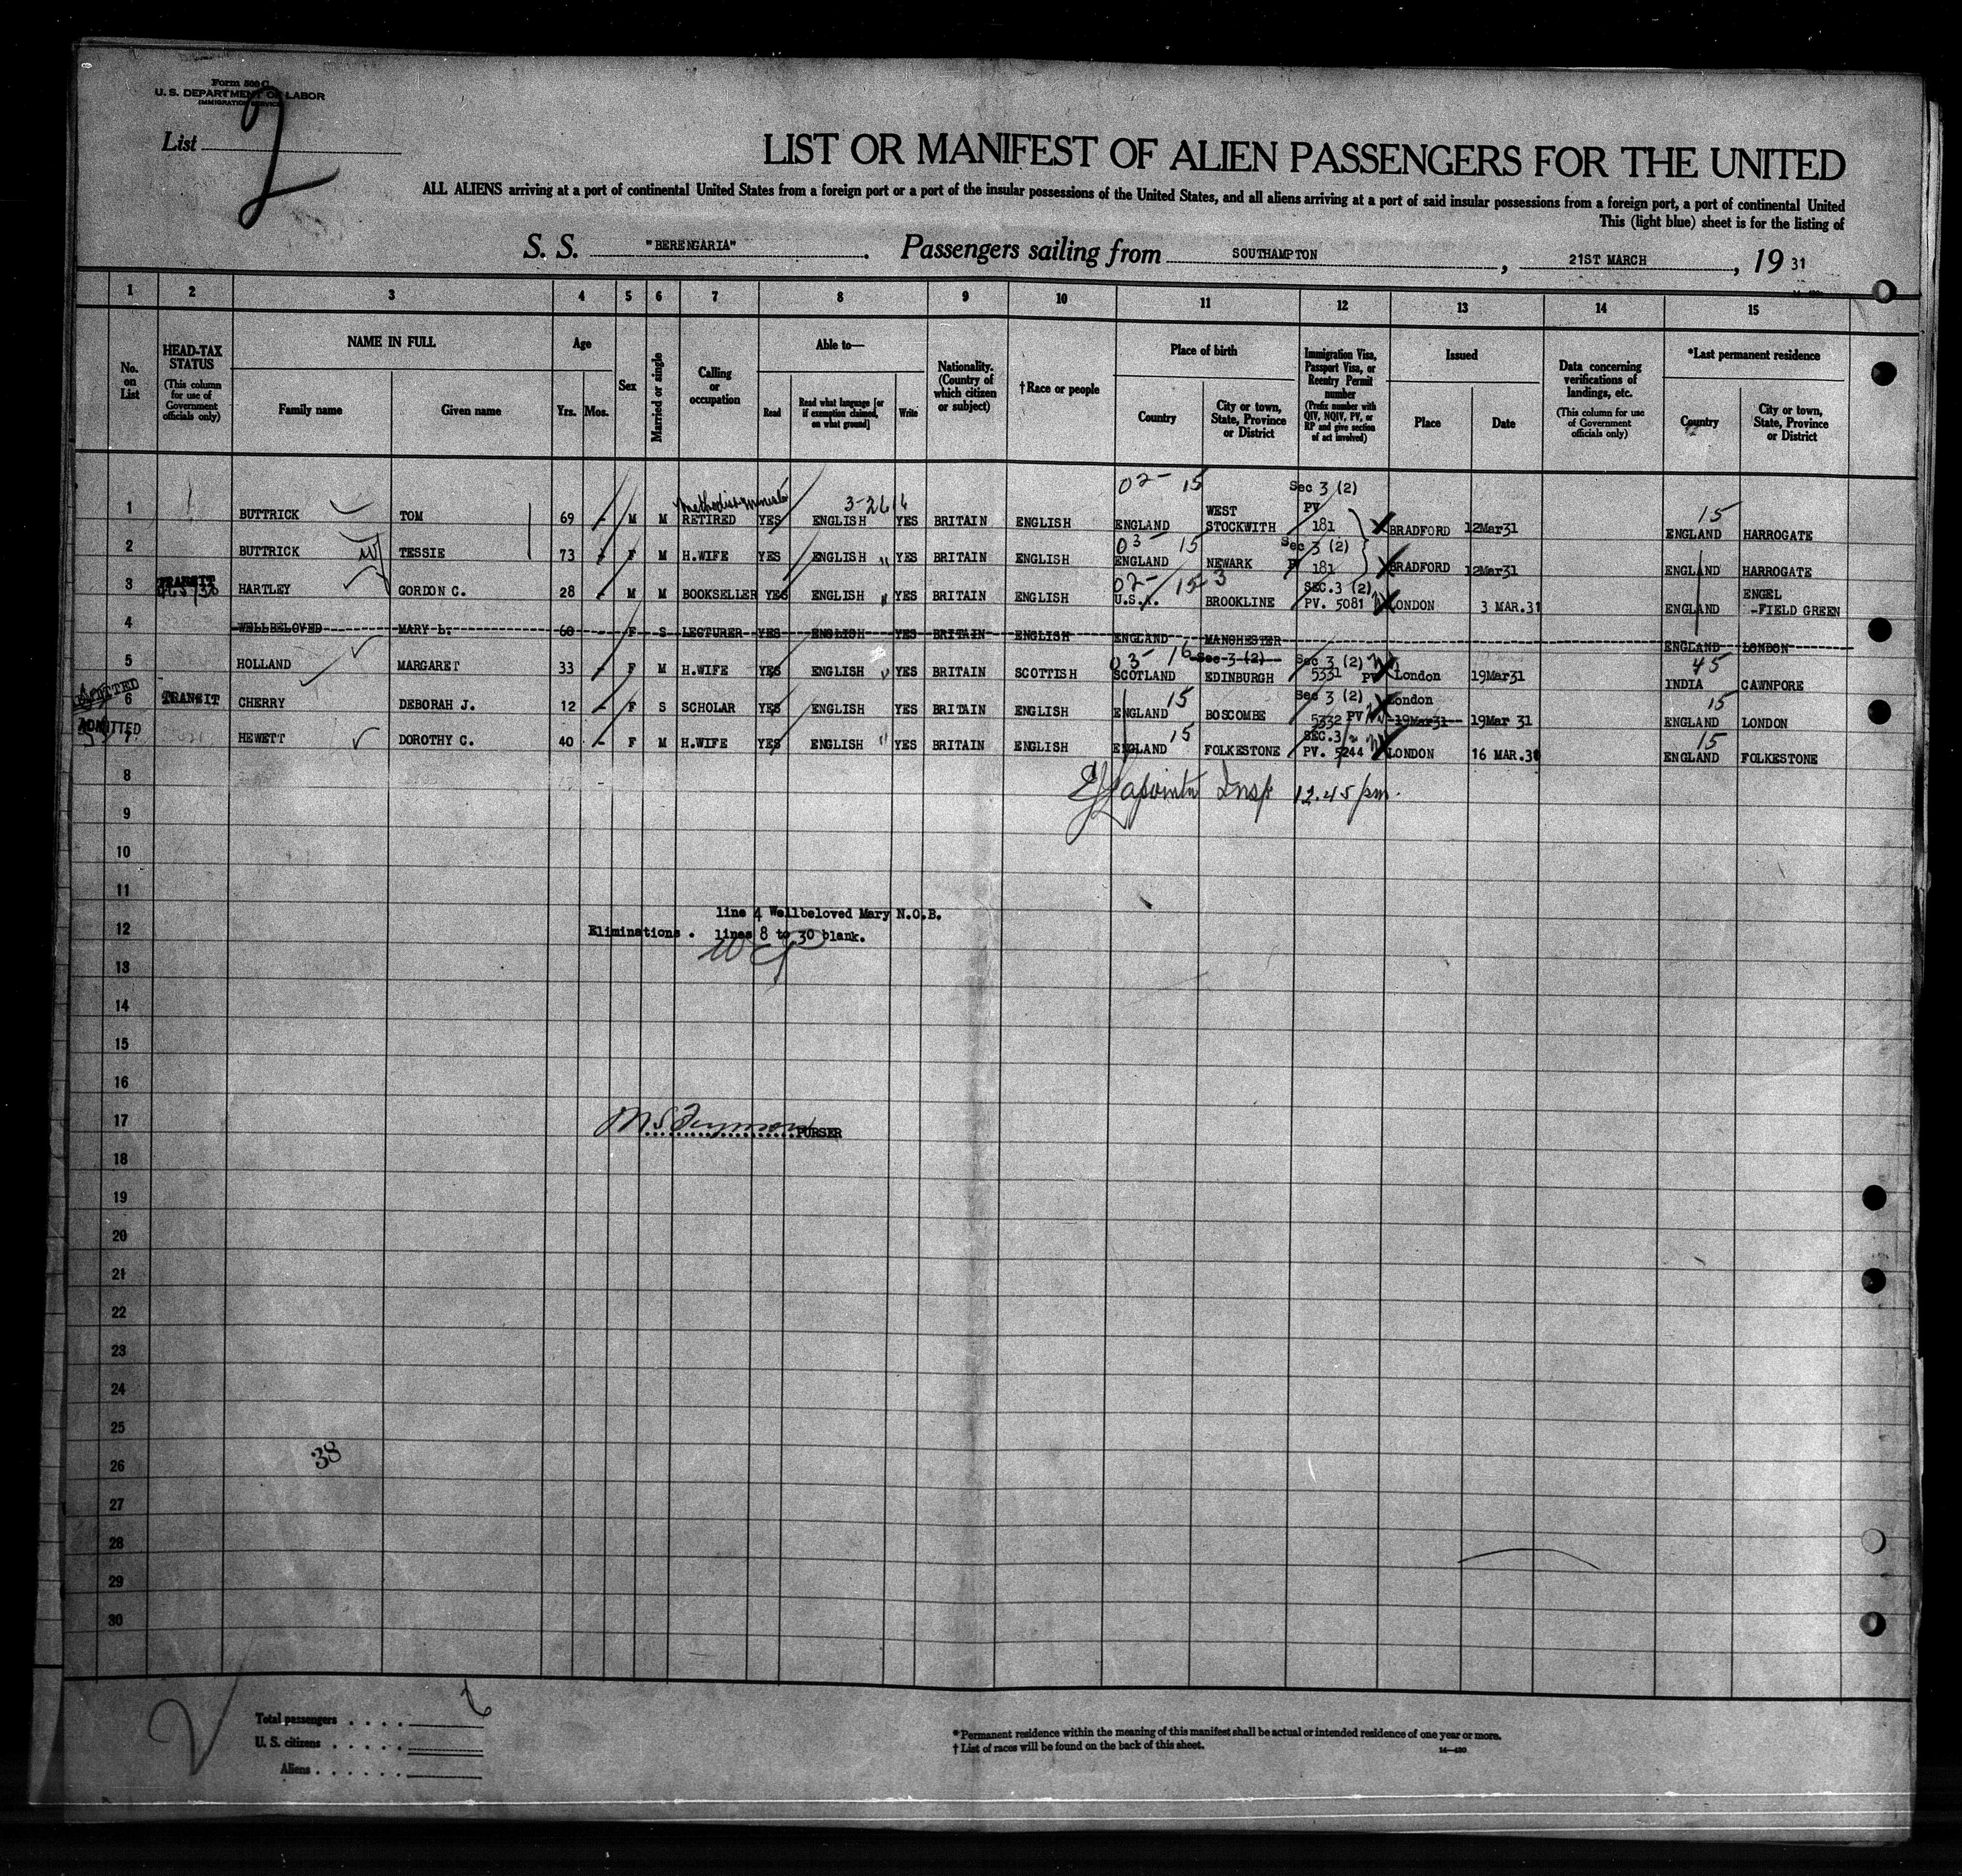 Form 500 C
U. S. DEPARTMENT OF LABOR
IMMIGRATION SERVICE
List 2
LIST OR MANIFEST OF ALIEN PASSENGERS FOR THE UNITED
ALL ALIENS arriving at a port of continental United States from a foreign port or a port of the insular possessions of the United States, and all aliens arriving at a port of said insular possessions from a foreign port, a port of continental United
This (light blue) sheet is for the listing of
S. S. "BERENGARIA". Passengers sailing from SOUTHAMPTON, 21ST MARCH, 19 31
1 2 3 4 5 6 7 8 9 10 11 12 13 14 15
No. on List
HEAD-TAX STATUS
(This column for use of Government officials only)
NAME IN FULL
Family name Given name
Age
Yrs. Mos.
Sex
Married or single
Calling or occupation
Able to—
Read Read what language [or if exemption claimed, on what ground] Write
Nationality. (Country of which citizen or subject)
†Race or people
Place of birth
Country City or town, State, Province or District
Immigration Visa, Passport Visa, or Reentry Permit number
(Prefix number with QIV, NQIV, PV, or RP and give section of act involved)
Issued
Place Date
Data concerning verifications of landings, etc.
(This column for use of Government officials only)
*Last permanent residence
Country City or town, State, Province or District
02- 15 Sec 3 (2)
1 BUTTRICK TOM 69 - M M RETIRED YES ENGLISH YES BRITAIN ENGLISH ENGLAND WEST STOCKWITH PV 181 BRADFORD 12Mar31 15 ENGLAND HARROGATE
03- 15 Sec 3 (2)
2 BUTTRICK TESSIE 73 - F M H.WIFE YES ENGLISH YES BRITAIN ENGLISH ENGLAND NEWARK PV 181 BRADFORD 12Mar31 ENGLAND HARROGATE
02- 15 3 SEC.3 (2)
3 TRANSIT HARTLEY GORDON C. 28 - M M BOOKSELLER YES ENGLISH YES BRITAIN ENGLISH U.S.A. BROOKLINE PV. 5081 LONDON 3 MAR.31 ENGLAND ENGEL-FIELD GREEN
4 WELLBELOVED MARY L. 60 - F S LECTURER YES ENGLISH YES BRITAIN ENGLISH ENGLAND MANCHESTER ENGLAND LONDON
03- 16 Sec 3 (2) Sec 3 (2)
5 HOLLAND MARGARET 33 - F M H.WIFE YES ENGLISH YES BRITAIN SCOTTISH SCOTLAND EDINBURGH 5331 PV London 19Mar31 45 INDIA CAWNPORE
ADMITTED
15 Sec 3 (2) London
6 TRANSIT CHERRY DEBORAH J. 12 - F S SCHOLAR YES ENGLISH YES BRITAIN ENGLISH ENGLAND BOSCOMBE 5332 PV 19Mar31 19Mar 31 15 ENGLAND LONDON
ADMITTED
15 SEC.3
7 HEWETT DOROTHY C. 40 - F M H.WIFE YES ENGLISH YES BRITAIN ENGLISH ENGLAND FOLKESTONE PV. 5244 LONDON 16 MAR.31 15 ENGLAND FOLKESTONE
8
Insp. 12.45 pm.
9
10
11
line 4 Wellbeloved Mary N.O.B.
12 Eliminations. lines 8 to 30 blank.
13
14
15
16
17 PURSER
18
19
20
21
22
23
24
25
38
26
27
28
29
30
Total passengers . . . . 6
U. S. citizens . . . . .
Aliens . . . . . .
*Permanent residence within the meaning of this manifest shall be actual or intended residence of one year or more.
† List of races will be found on the back of this sheet.
14—430